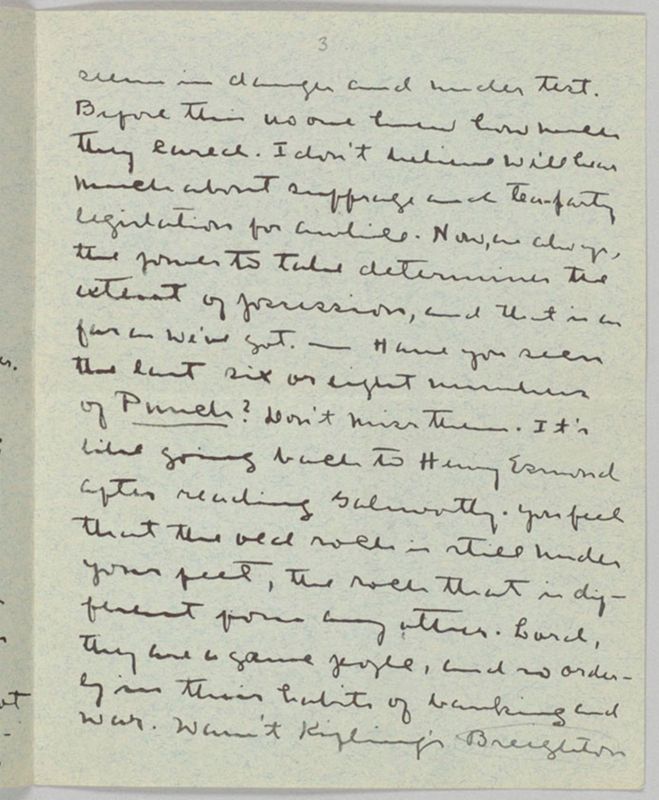 3
seem in danger and under test.
Before this no one knew how much
they cared. I don't believe we'll hear
much about suffrage and tea-party
legislation for awhile. Now, as always,
the power to take determines the
extent of possession, and that is as
far as we've got. — Have you seen
the last six or eight numbers
of Punch? Don't miss them. It's
like going back to Henry Esmond
after reading Galsworthy. You feel
that the old rock is still under
your feet, the rock that is dif-
ferent from any other. Lord,
they are a game people, and so order-
ly in their habits of banking and
war. Wasn't Kipling's Breighton